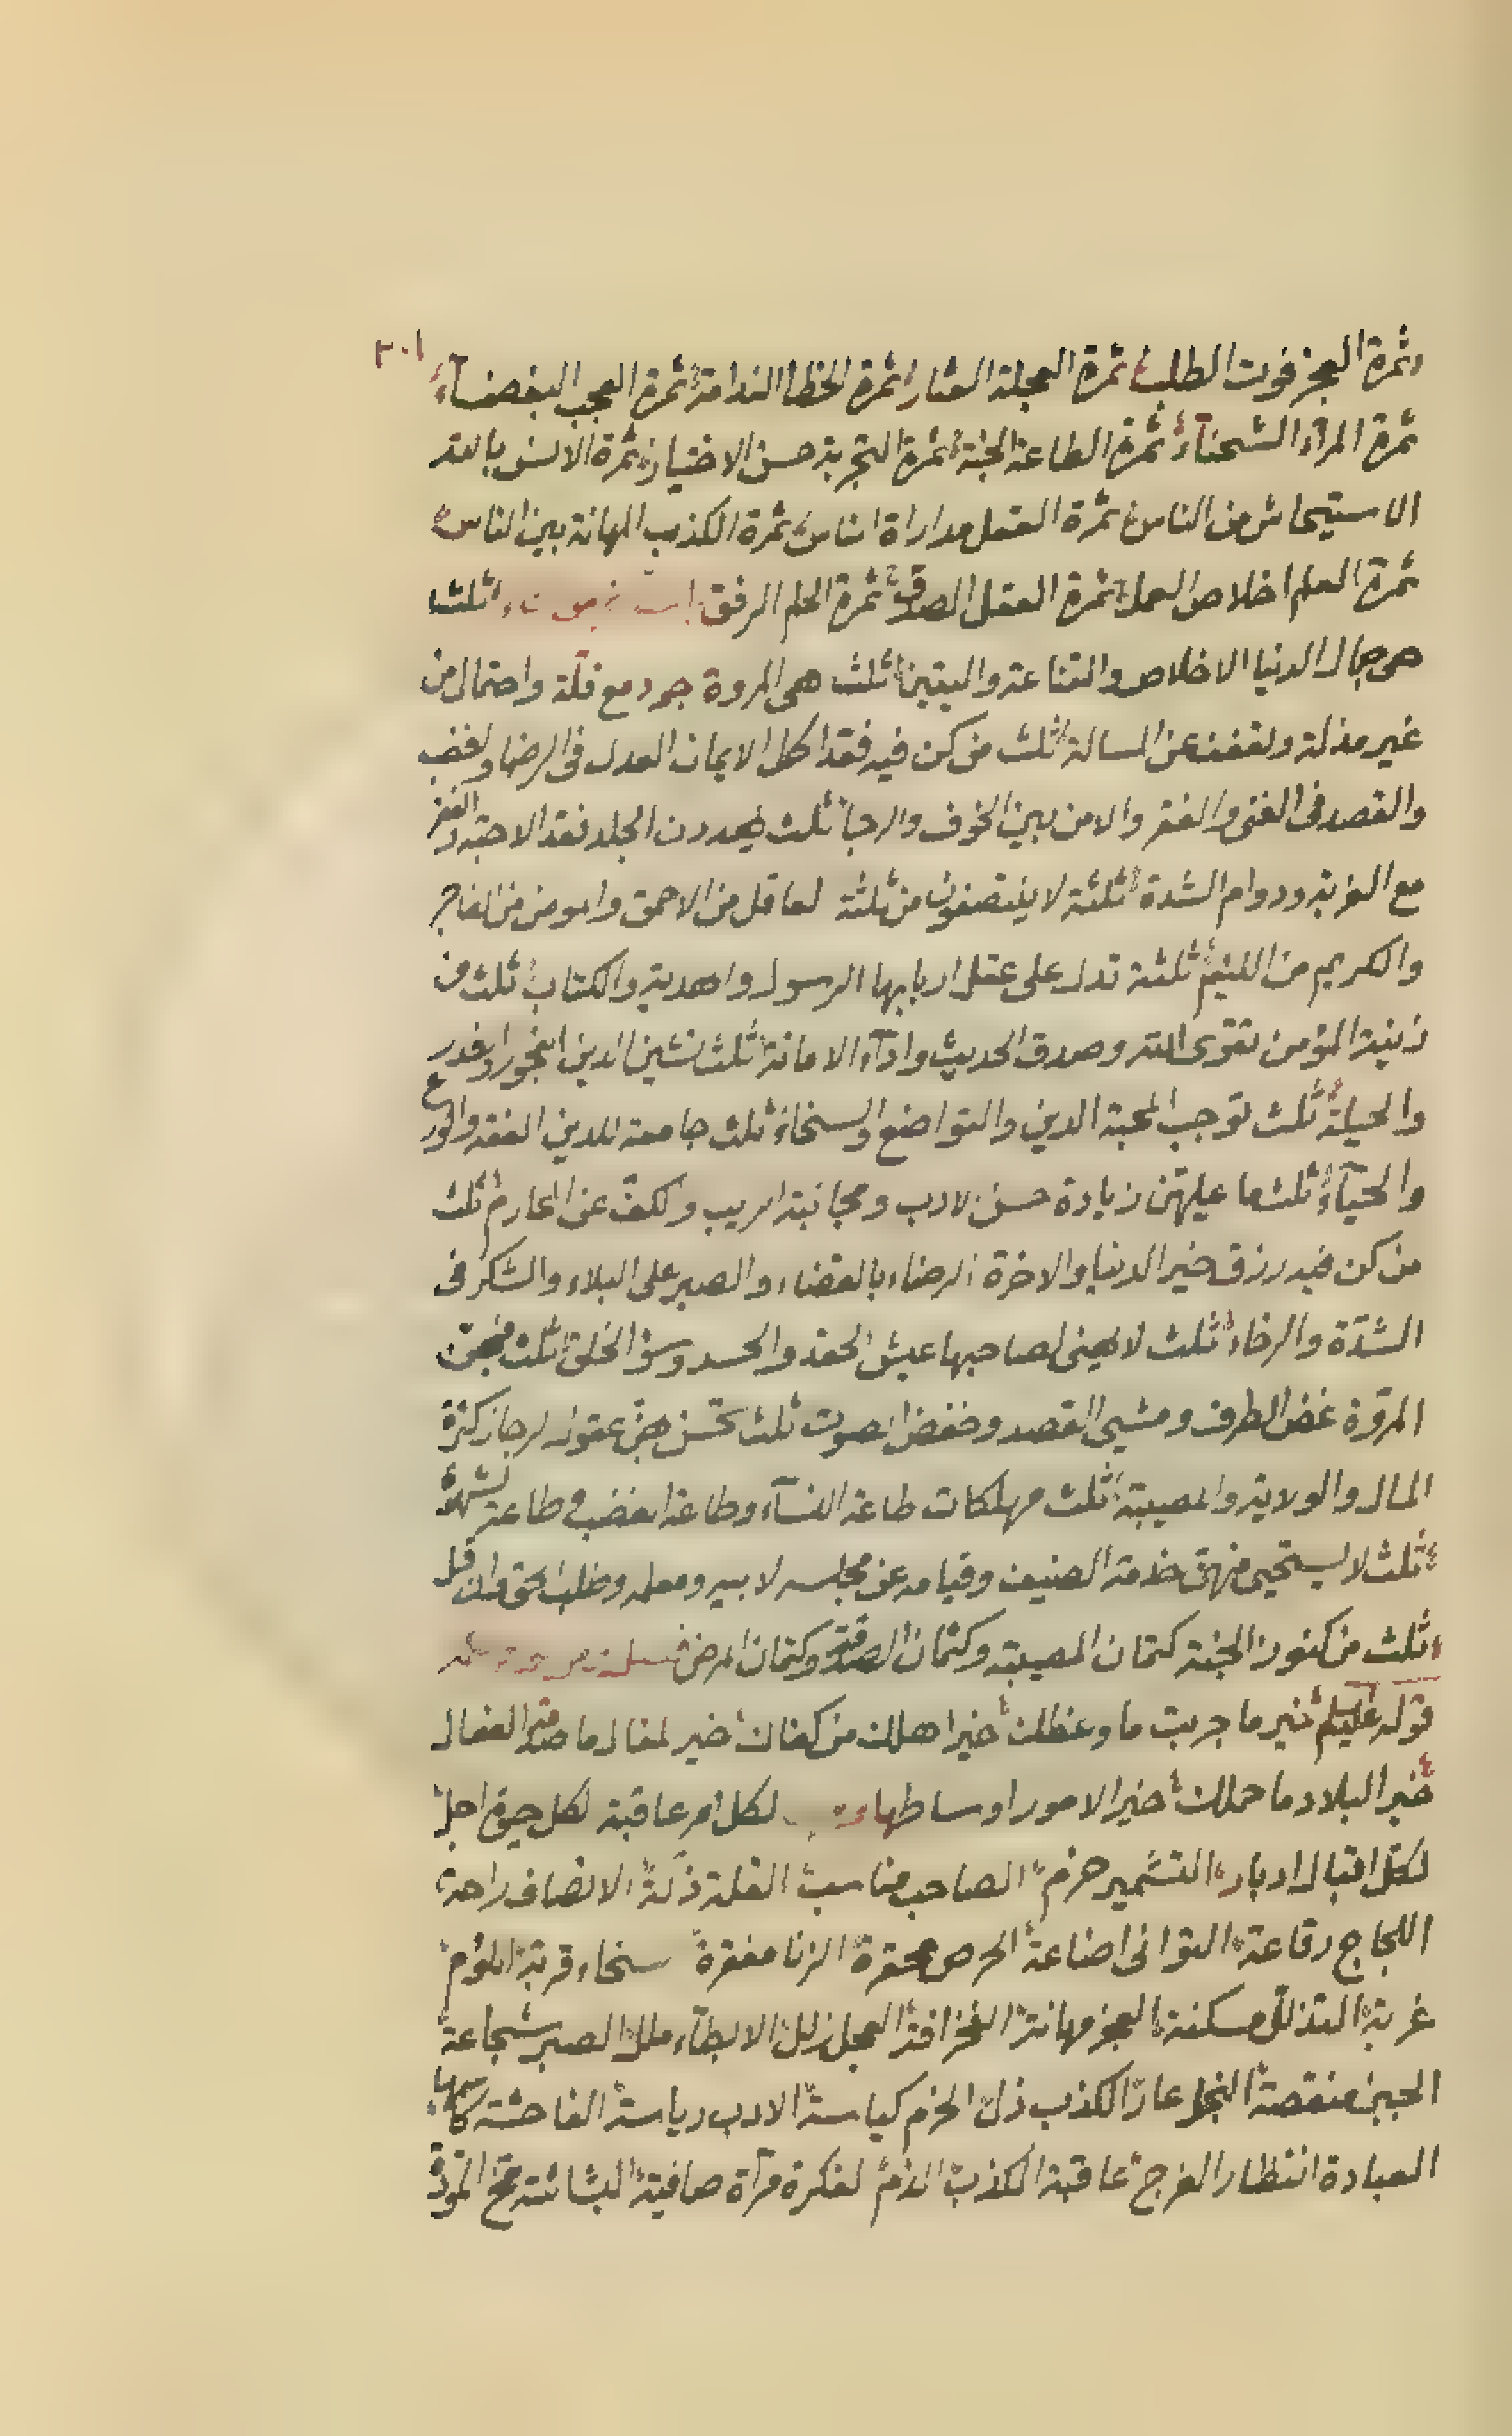 ٣٠١
ثمرة العجز فوت الطلب ثمرة العجلة العثار ثمرة الخطا الندامة ثمرة العجب البغضآء
ثمرة المرآء الشحنآء ثمرة الطاعة الجنة ثمرة التجربة حسن الاختيار ثمرة الانس بالله
الاستيحاش من الناس ثمرة العقل مداراة الناس ثمرة الكذب المهانة بين الناس
ثمرة العلم اخلاص العمل ثمرة العقل الصدق ثمرة الحلم الرفق ثلث
هى جمال الدنيا الاخلاص والقناعة واليقين ثلث هى المروة جود مع قلّة واحتمال من
غير مذلة وتعفف عن المسالة ثلث من كن فيه فقد اكمل الايمان العدل فى الرضا والغضب
والقصد فى الغنى والفقر والامن بين الخوف والرجا ثلث يهددن الجلد فقد الاحبّة والفقر
مع الغربة ودوام الشدة ثلثة لا ينتصفون من ثلثة العاقل من الاحمق والمومن من الفاجر
والكريم من اللئيم ثلثة تدل على عقل اربابها الرسول والهدية والكتاب ثلث من
زينة المؤمن تقوى الله وصدق الحديث وادآء الامانة ثلث تشين الدين الفجور والغدر
والحيلة ثلث توجب المحبة الدين والتواضع والسخاء ثلث جامعة للدين الفقه والورع
والحيآء ثلث ما عليهن زيادة حسن الادب ومجانبة الريب والكف عن المحارم ثلث
من كن فيه رزق خير الدنيا والاخرة الرضاء بالقضاء والصبر على البلاء والشكر فى
الشدّة والرخاء ثلث لا يهنى لصاحبها عيش الحقد والحسد وسوء الخلق ثلث فيهن
المروّة غض الطرف ومشى القصد وخفض الصوت ثلث تمتحن بهن عقول الرجال كثرة
المال والولاية والمصيبة ثلث مهلكات طاعة النسآء وطاعة الغضب وطاعة الشهوة
ثلث لا يستحيى منهن خدمة الضيف وقيامه عن مجلسه لابيه ومعلمه وطلب الحق وان قل
ثلث من كنوز الجنة كتمان المصيبة وكتمان الصدقة وكتمان المرض
قوله عليه السلم خير ما جربت ما وعظك خير اهلك من كفاك خير المقال ما صدقه الفعال
خير البلاد ما حملك خير الامور اوساطها لكل امر عاقبة لكل حيوة اجل
لكل اقبال ادبار التشمير حزم الصاحب مناسب القلة ذلة الانصاف راحة
اللجاج رقاعة التوانى اضاعة الحرص محقرة الزنا مفقرة سخاء قربة اللؤم
غربة التذلل مسكنة العجز مهانة العجز افة العجل زلل الابطآء ملل الصبر شجاعة
الجبن منقصة البخل عار الكذب ذل الحزم كياسة الادب رياسة الفاحشة كاسمها
العبادة انتظار الفرج عاقبة الكذب الذم الفكرة مرآة صافية البشاشة مخ المودة